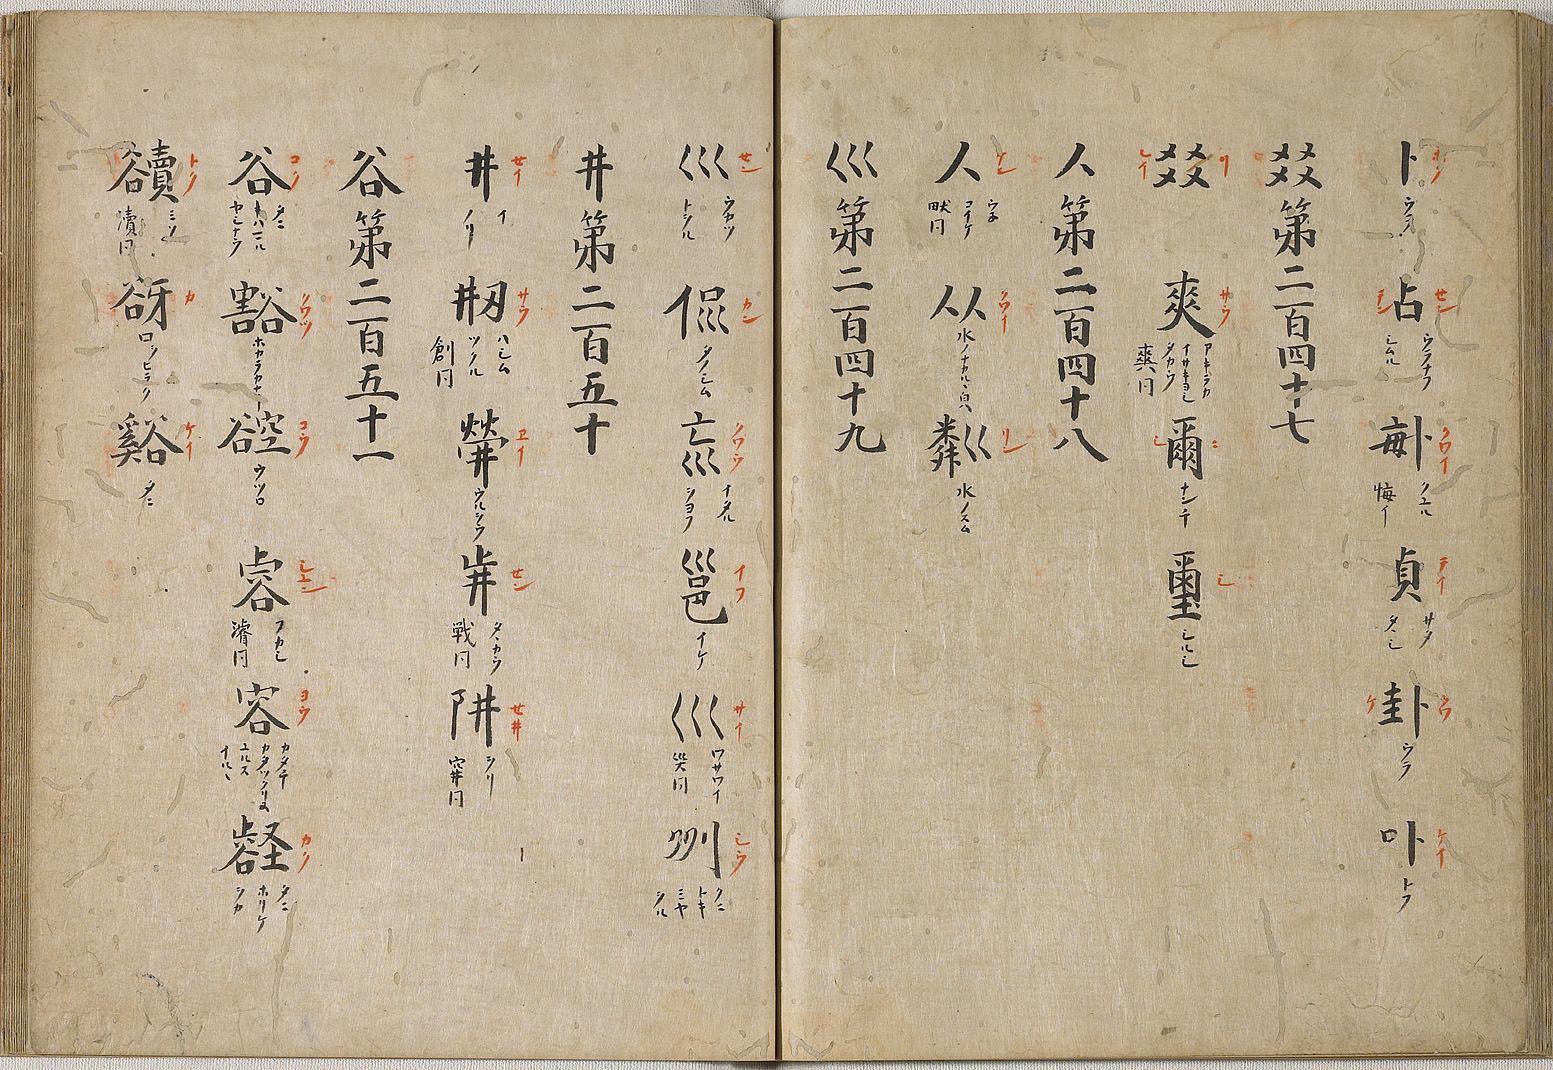 卜 ホク ウラ 占 セン シム ウラナフ シムル 𠧩 クワイ クユル 悔イ 貞 テイ サタ タヽシ 卦 クワ ケ ウラ 卟 ケイ トフ
㸚第二百四十七
㸚 リ シイ 爽 サウ アキラカ イサキヨシ タカウ 爽同 爾 シ ナンチ 璽 シ シルシ
人第二百四十八
人 ケン ウネ コイケ 畎同 从 クワイ 水ノナカルヽ皃 粦巜 リン 水ノスム
巛第二百四十九
巛 セン ウカツ トシル 侃 カン タノシム 巟 クワウ ナタル シヨフ 邕 イフ イケ 巛 サイ ワサワイ 災同 州 シウ クニ トキ ミヤ シル
井第二百五十
井 セイ イ ノリ 刱 サウ ハシム ツクル 創同 㷀 エイ ウルシウ セン タヽカウ 戦同 阱 セ井 シリ 穽同
谷第二百五十一
谷 コク タニ キハマル ヤシナウ 豁 クワツ ホカラカナリ 谾 コウ ウツロ 睿 シユン フカシ 濬同 容 ヨウ カタチ カタツクリス ユルス イルヽ 壑 カク タニ ホリケ シカ
豄 トク ミソ 瀆同 谺 カ ロシヒラク 谿 ケイ タニ